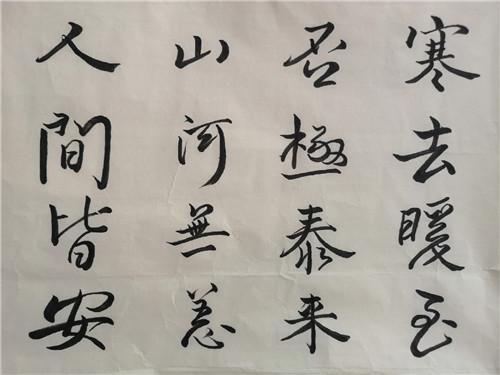 寒去暖至
否極泰来
山河無恙
人間皆安